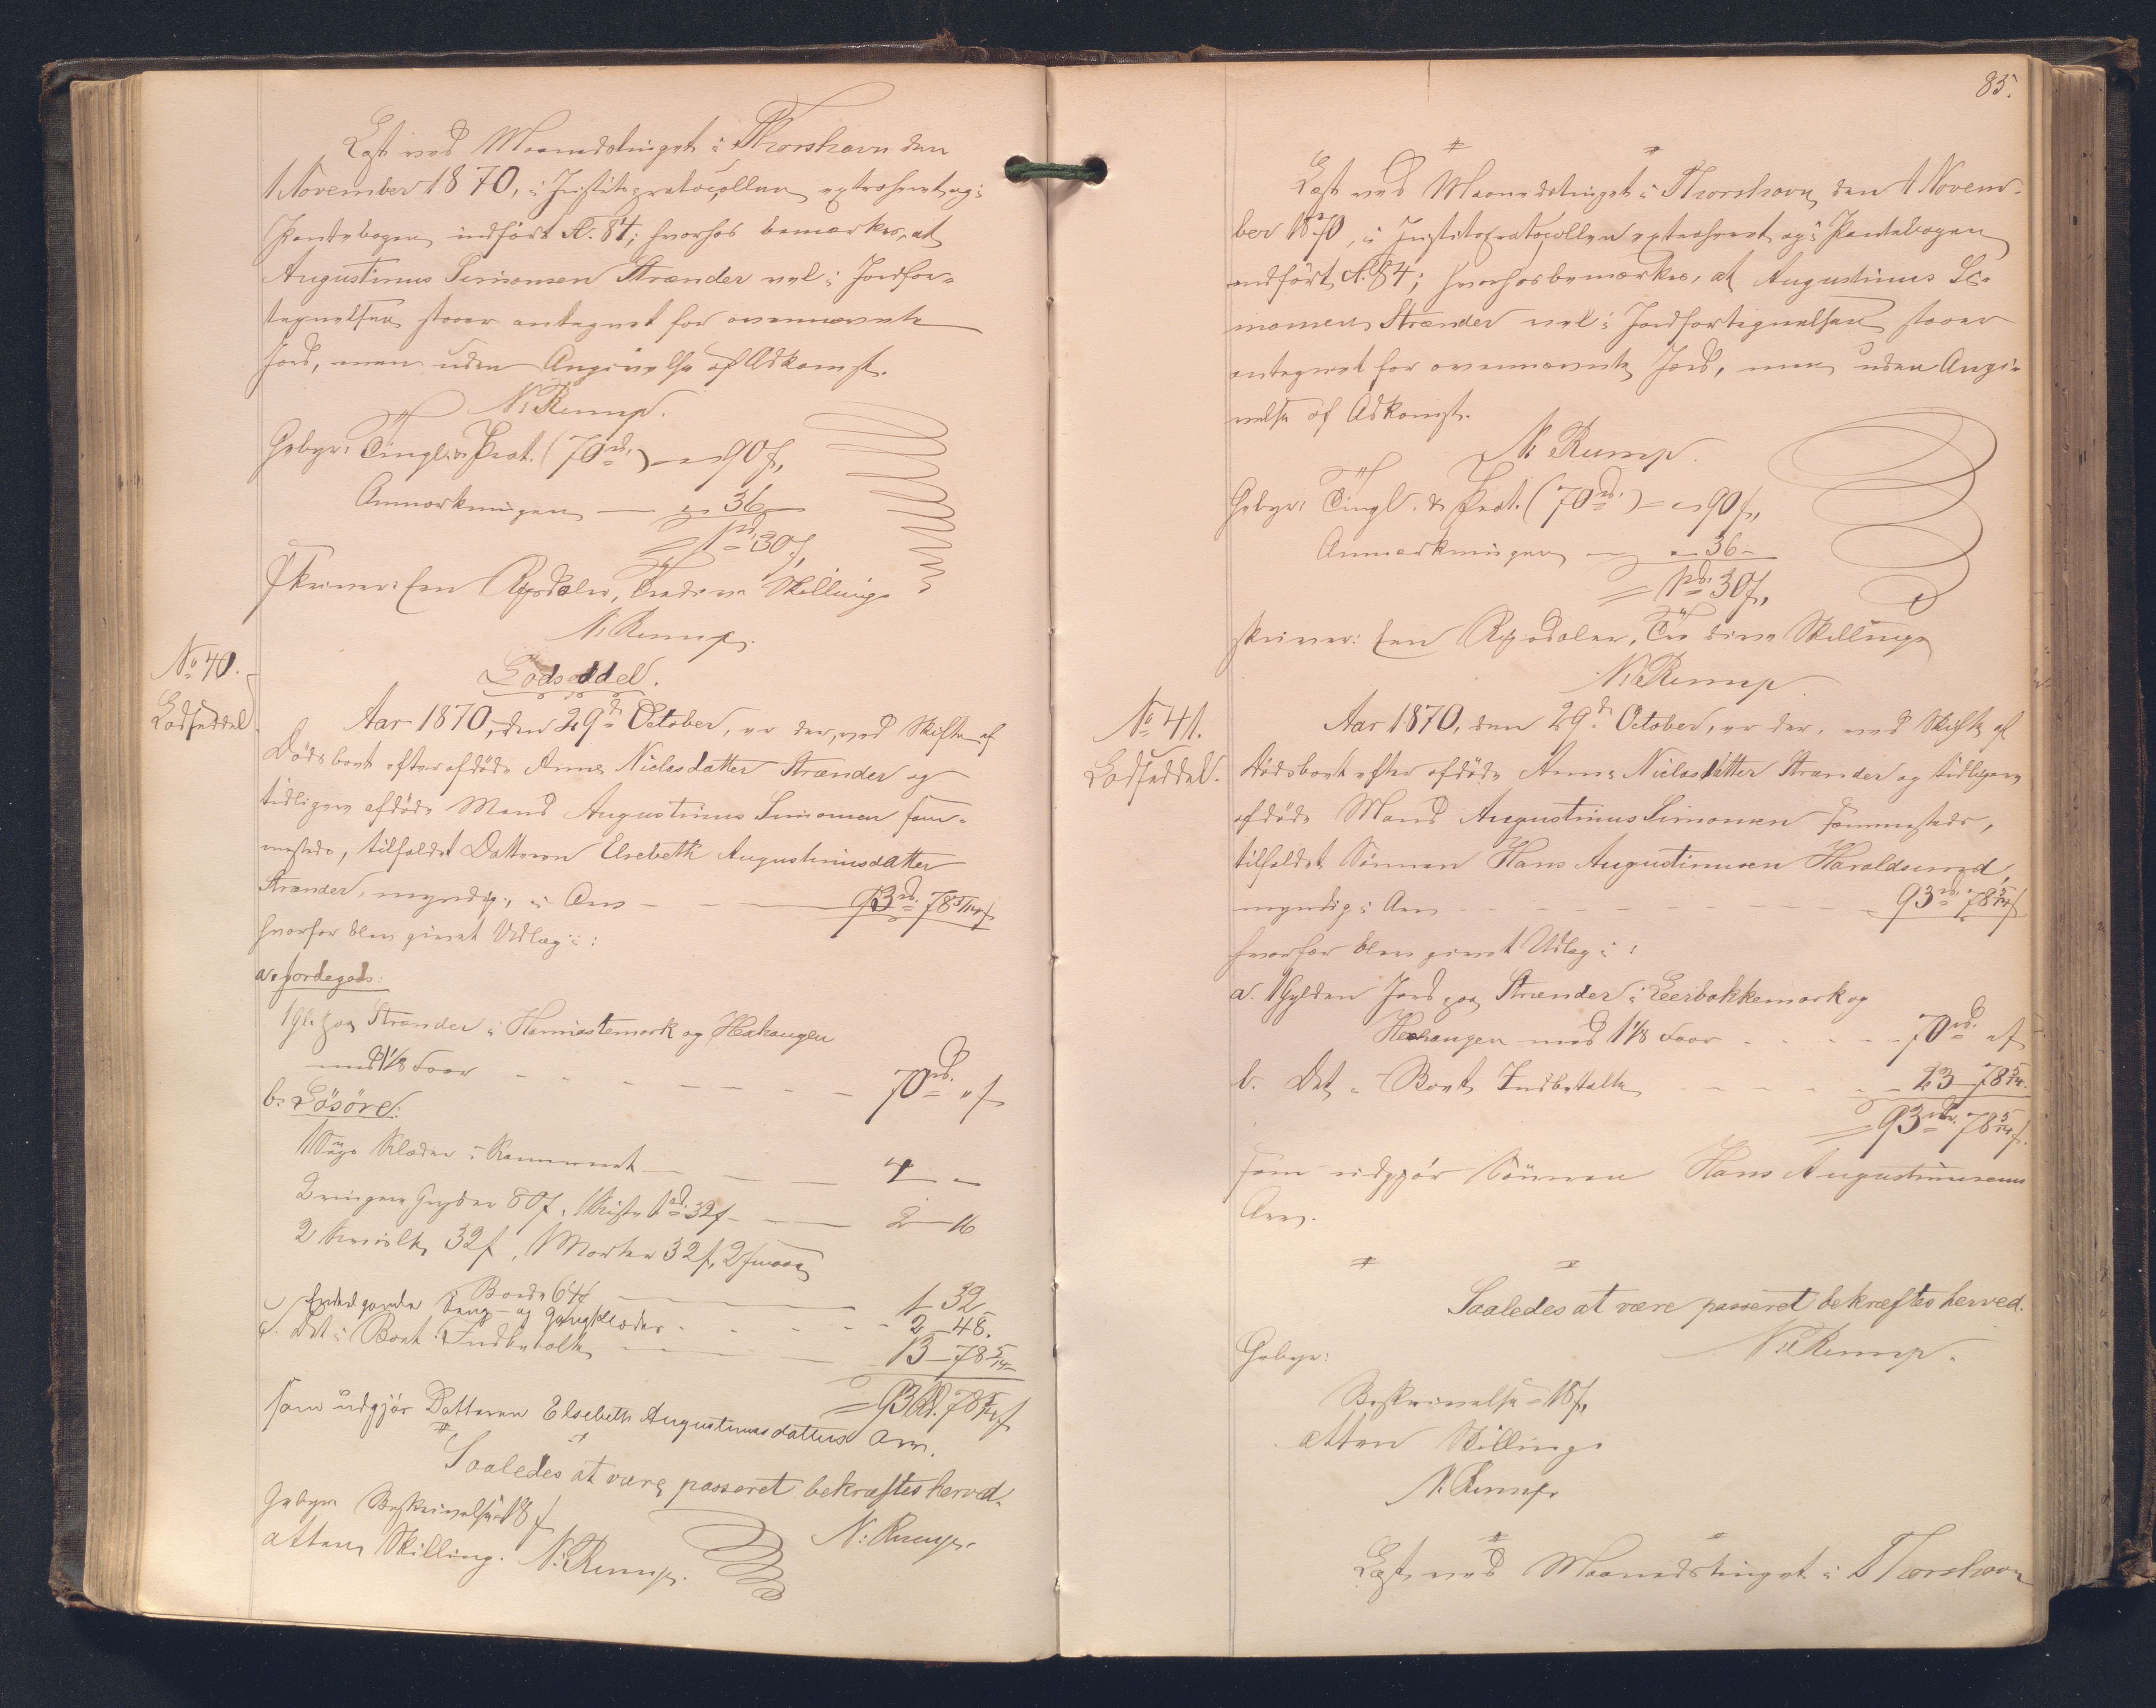 Læst ved Maanedstinget i Thorshavn den
1 November 1870, i Justitsprotocollen extraheret og i
Pantebogen indført S. 84; hvorhos bemærkes, at
Augustinus Simonsen Strænder vel i Jordfor-
tegnelsen staaer antegnet for ovennævnte
Jord, men uden Angivelse af Adkomst.
N: Rump.
Gebyr: Tingl. & Prot. (70 rd.) - 90 s,
Anmærkningen - 36 -
1 rd. 30 s,
skriver: Een Rigsdaler, Tredive Skilling.
N: Rump.
No 40.
Lodseddel.
Lodseddel.
Aar 1870, den 29de October, er der, ved Skifte af
Dødsboet efter afdøde Anne Niclasdatter Strænder og
tidligere afdøde Mand Augustinus Simonsen sam-
mesteds, tilfaldet Datteren Elsebeth Augustinusdatter
Strænder, myndig, i Arv - - 93 rd. 78 5/14 s
hvorfor blev givet Udlæg i:
a. Jordegods:
1 Gl. paa Strænder i Hamiastemark og Heahaugen
med 1 1/8 Foer - - - - - - - 70 rd. " s
b. Løsøre:
Senge Klæder i Kammeret - - - 4 - -
2 ringere Gryder 80 s, 1 Kiste 1 rd. 32 s - - 2 - 16
2 32 s, 1 Morter 32 s, 2 smaae
Borde 64 s - - - 1 32
c. Endel gamle Seng- og Gangklæder - - - - 2 48.
d. Det i Boet Indbetalte - - - 13 - 78 5/14
= 93 Rd. 78 5/14 s
som udgjør Datteren Elsebeth Augustinusdatters Arv.
Saaledes at være passeret bekræftes herved.
N: Rump.
Gebyr Beskrivelse 18 s
atten Skilling. N: Rump.
85.
Læst ved Maanedstinget i Thorshavn, den 1 Novem-
ber 1870, i Justitsprotocollen extraheret og i Pantebogen
indført S. 84; hvorhos bemærkes, at Augustinus Si-
monsen Strænder vel i Jordfortegnelsen staaer
antegnet for ovennævnte Jord, men uden Angi-
velse af Adkomst.
N: Rump.
Gebyr: Tingl. & Prot. (70 rd.) - 90 s,
Anmærkningen - 36 -
= 1 rd. 30 s,
skriver: Een Rigsdaler, Tredive Skilling
N: Rump.
No 41.
Lodseddel.
Aar 1870, den 29de October, er der, ved Skifte af
Dødsboet efter afdøde Anne Niclasdatter Strænder og tidligere
afdøde Mand Augustinus Simonsen sammesteds,
tilfaldet Sønnen Hans Augustinusen Haraldsund,
myndig i Arv - - - - - - - 93 rd. 78 5/14 s
hvorfor blev givet Udlæg i:
a. 1 Gylden Jord paa Strænder i Leerbakkemark og
Heahaugen med 1 1/8 Foer - - - - - 70 rd. " s
b. Det i Boet Indbetalte - - - - - - 23 - 78 5/14.
= 93 rd. 78 5/14 s.
som udgjør Sønnen Hans Augustinusens
Arv.
Saaledes at være passeret bekræftes herved.
N: Rump.
Gebyr:
Beskrivelse = 18 s,
atten Skilling.
N. Rump.
Læst ved Maanedstinget i Thorshavn